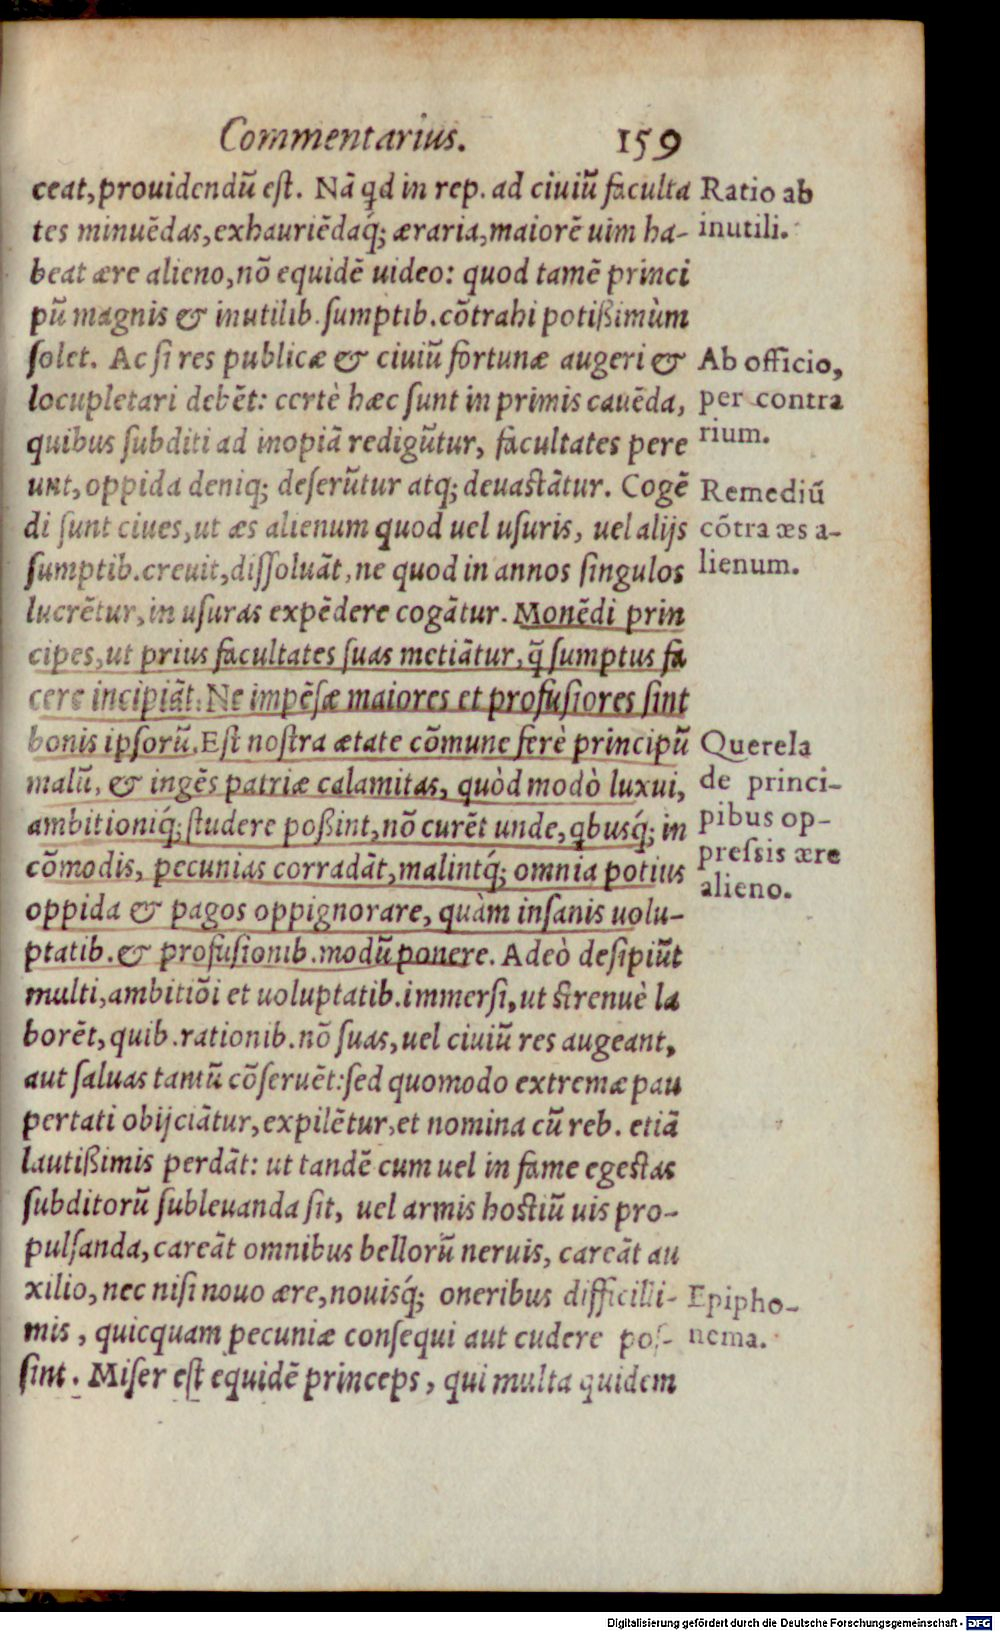 Commentarius. 159
ceat, prouidendũ est. Nã q̃d in rep. ad ciuiũ faculta
tes minuẽdas, exhauriẽdaq́; æraria, maiorẽ uim ha-
beat ære alieno, nõ equidẽ uideo: quod tamẽ princi
pũ magnis & inutilib. sumptib. cõtrahi potißimùm
solet. Ac si res publicæ & ciuiũ fortunæ augeri &
locupletari debẽt: certè hæc sunt in primis cauẽda,
quibus subditi ad inopiã redigũtur, facultates pere
unt, oppida deniq; deserũtur atq; deuastãtur. Cogẽ
di sunt ciues, ut æs alienum quod uel usuris, uel alijs
sumptib. creuit, dissoluãt, ne quod in annos singulos
lucrẽtur, in usuras expẽdere cogãtur. Monẽdi prin
cipes, ut prius facultates suas metiãtur, q̃ sumptus fa
cere incipiãt. Ne impẽsæ maiores et profusiores sint
bonis ipsorũ. Est nostra ætate cõmune ferè principũ
malũ, & ingẽs patriæ calamitas, quòd modò luxui,
ambitioniq́; studere poßint, nõ curẽt unde, qbusq́; in
cõmodis, pecunias corradãt, malintq́; omnia potius
oppida & pagos oppignorare, quàm insanis uolu-
ptatib. & profusionib. modũ ponere. Adeò desipiũt
multi, ambitiõi et uoluptatib. immersi, ut strenuè la
borẽt, quib. rationib. nõ suas, uel ciuiũ res augeant,
aut saluas tantũ cõseruẽt: sed quomodo extremæ pau
pertati obijciãtur, expilẽtur, et nomina cũ reb. etiã
lautißimis perdãt: ut tandẽ cum uel in fame egestas
subditorũ subleuanda sit, uel armis hostiũ uis pro-
pulsanda, careãt omnibus bellorũ neruis, careãt au
xilio, nec nisi nouo ære, nouisq́; oneribus difficilli-
mis, quicquam pecuniæ consequi aut cudere pos-
sint. Miser est equidẽ princeps, qui multa quidem
Ratio ab
inutili.
Ab officio,
per contra
rium.
Remediũ
cõtra æs a-
lienum.
Querela
de princi-
pibus op-
pressis ære
alieno.
Epipho-
nema.
Digitalisierung gefördert durch die Deutsche Forschungsgemeinschaft - DFG